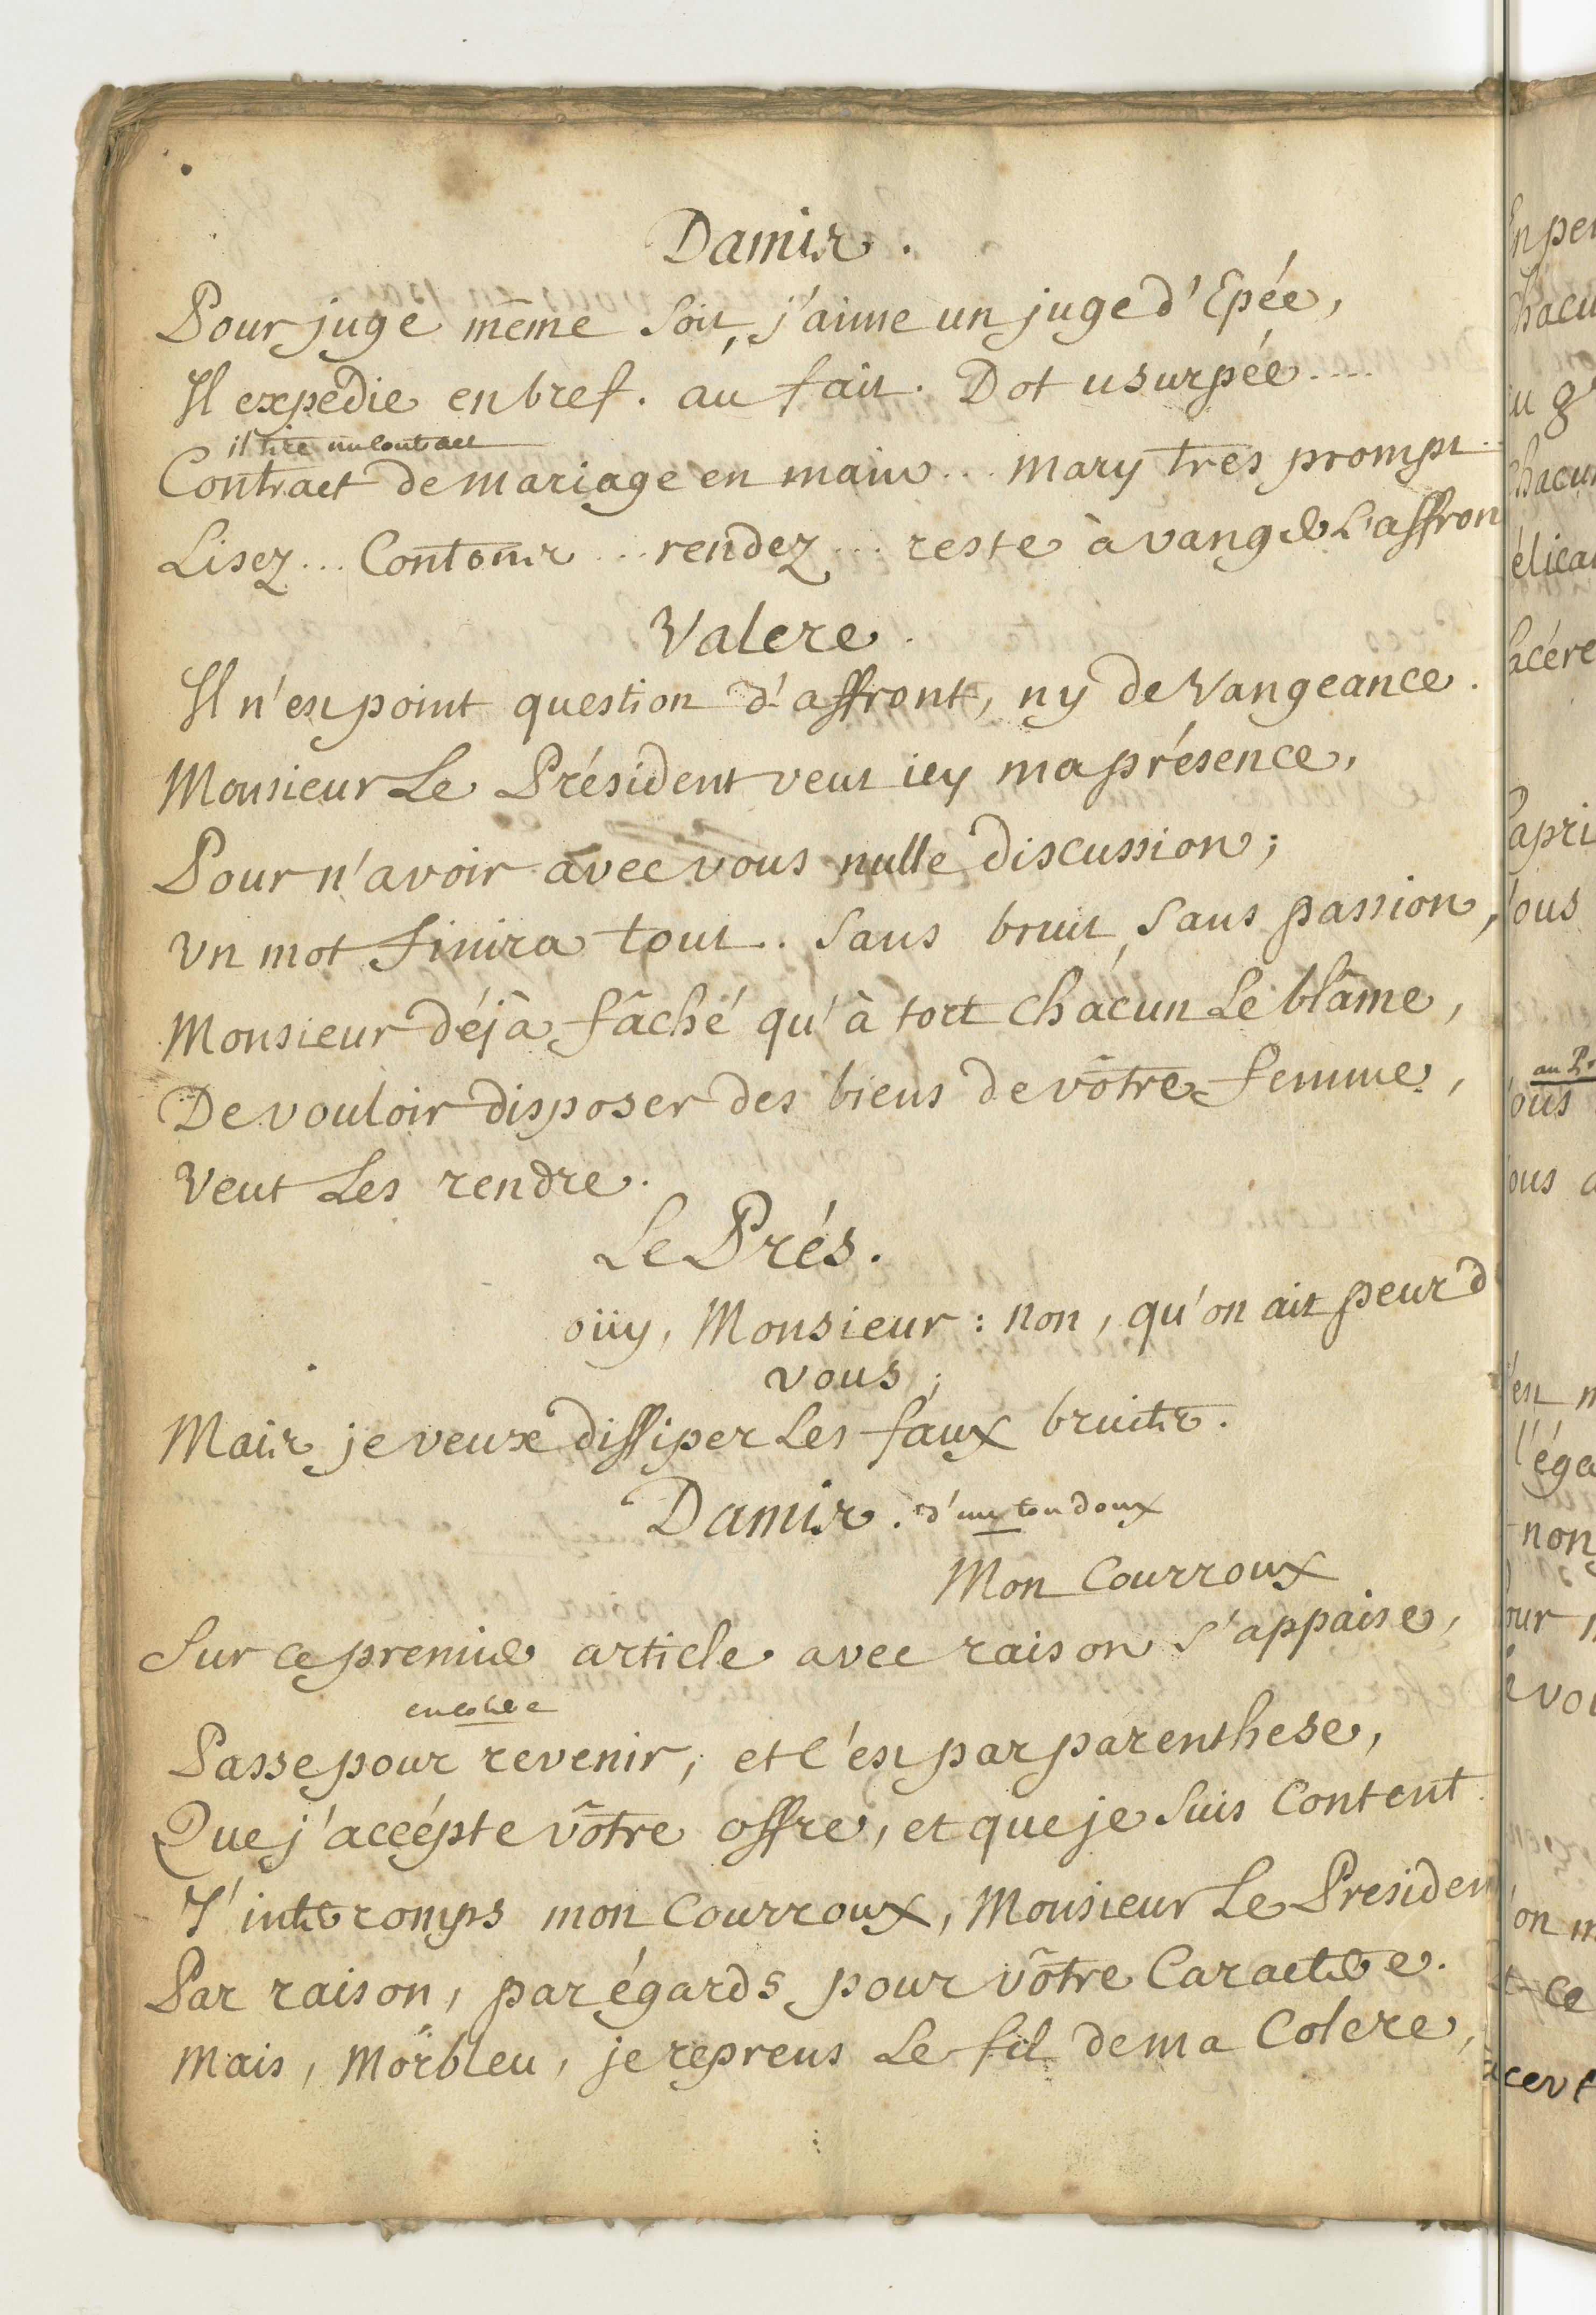 Damis.
Pour juge même soit, j'aime un juge d'Epée,
Il expedie en bref. au fait. Dot usurpée....
il tire un contract
Contract de mariage en main... mary tres prompt..
Lisez... Contons... rendez... reste à vanger L'affron
Valere.
Il n'est point question d'affront, ny de Vangeance.
Monsieur Le Président veut icy ma présence,
Pour n'avoir avec vous nulle discussion;
Un mot finira tout.. sans bruit, sans passion,
Monsieur déjà fâché qu'à tort chacun Le blâme,
De vouloir disposer des biens de vôtre femme,
Veut Les rendre.
Le Prés.
oüy, Monsieur : non, qu'on ait peur d
vous;
Mais je veux dissiper Les faux bruits.
Damis. d'un ton doux
Mon Courroux
Sur ce premier article avec raison s'appaise,
encolere
Passe pour revenir; et c'est par parenthese,
Que j'accépte vôtre offre, et que je suis Content.
J'interromps mon Courroux, Monsieur Le Presiden
Par raison, par égards pour vôtre Caractere.
Mais, Morbleu, je reprens Le fil de ma Colere,